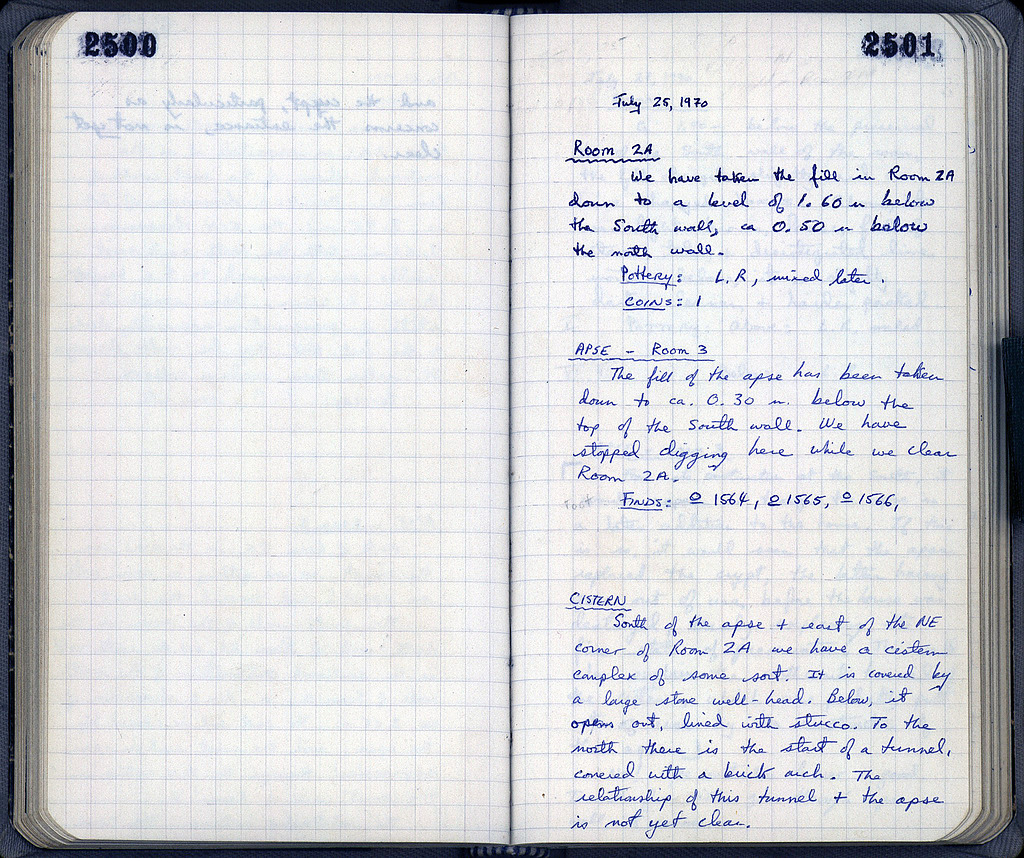 2500
2501
July 25, 1970
Room 2A
We have taken the fill in Room 2A
down to a level of 1.60 m below
the South wall, ca 0.50 m below
the north wall.
Pottery: L.R, mixed later.
COINS: 1
APSE - Room 3
The fill of the apse has been taken
down to ca. 0.30 m. below the
top of the South wall. We have
stopped digging here while we clear
Room 2A.
FINDS: o 1564, o 1565, o 1566,
CISTERN
South of the apse + east of the NE
corner of Room 2A we have a cistern
complex of some sort. It is covered by
a large stone well-head. Below, it
opens out, lined with stucco. To the
north there is the start of a tunnel,
covered with a brick arch. The
relationship of this tunnel + the apse
is not yet clear.